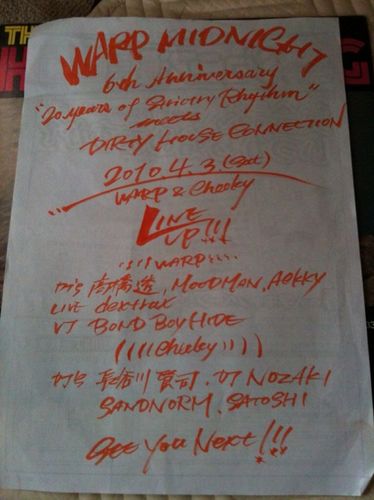 WARP MIDNIGHT
6th Anniversary
"20 years of Strictry Rhythm"
meets
DIRTY HOUSE CONNECTION
2010.4.3.(Sat)
WARP & Cheeky
LINE
UP!!!
WARP
DJ's 高橋透, MOODMAN, Aekky
LIVE dextrax
VJ BOND BOY HIDE
((((Cheeky))))
DJ's 長谷川賢司, DJ NOZAKI
SANDNORM, SATOSHI
See You Next!!!